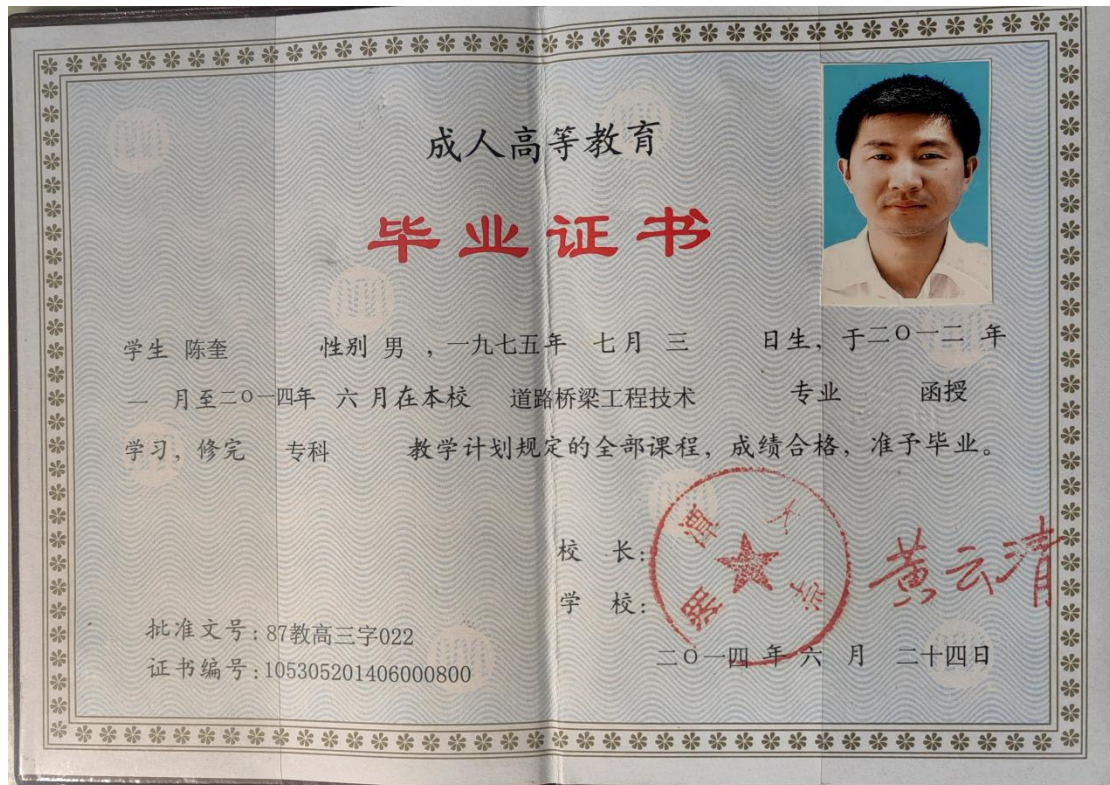 成人高等教育
毕业证书
学生 陈奎 性别 男 ，一九七五年 七月 三 日生，于二〇一二 年
一 月至二〇一四年 六 月在本校 道路桥梁工程技术 专业 函授
学习，修完 专科 教学计划规定的全部课程，成绩合格，准予毕业。
校 长：
黄云清
学 校：
湘潭大学
批准文号：87教高三字022
证书编号：105305201406000800
二〇一四 年 六 月 二十四日